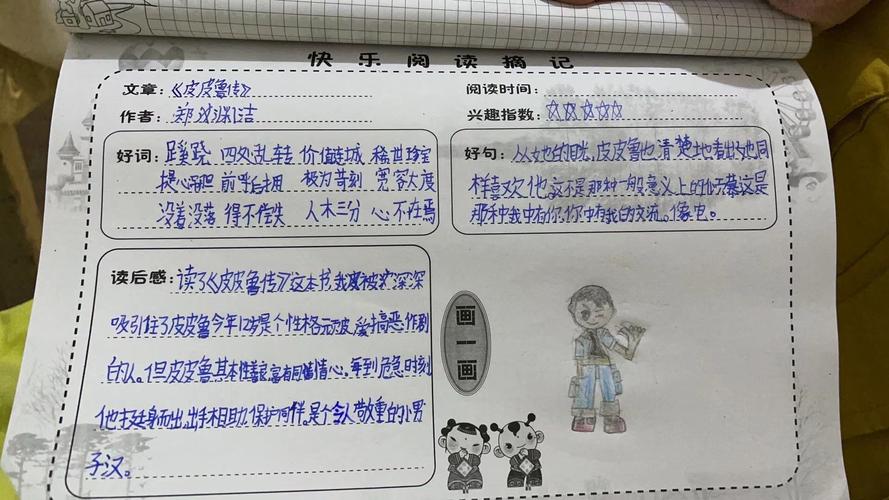 快乐阅读摘记
文章:《皮皮鲁传》
阅读时间:
作者:郑渊洁
兴趣指数:☆☆☆☆☆
好词:蹊跷 四处乱转 价值链城 稀世珍宝
提心吊胆 前呼后拥 极为苛刻 宽容大度
没着没落 得不偿失 入木三分 心不在焉
好句:从她的目光,皮皮鲁也清楚地看出她也同
样喜欢他这不是那种一般意义上的仰慕这是
那种我中有你,你中有我的交流。像电。
读后感:读了《皮皮鲁传》这本书,我被深深
吸引住了皮皮鲁今年12岁是个性格顽皮,爱搞恶作剧
的人。但皮皮鲁其本性善良富有同情心。每到危急时刻
他挺身而出,出手相助,保护同伴。是个令人敬重的小男
子汉。
画一画